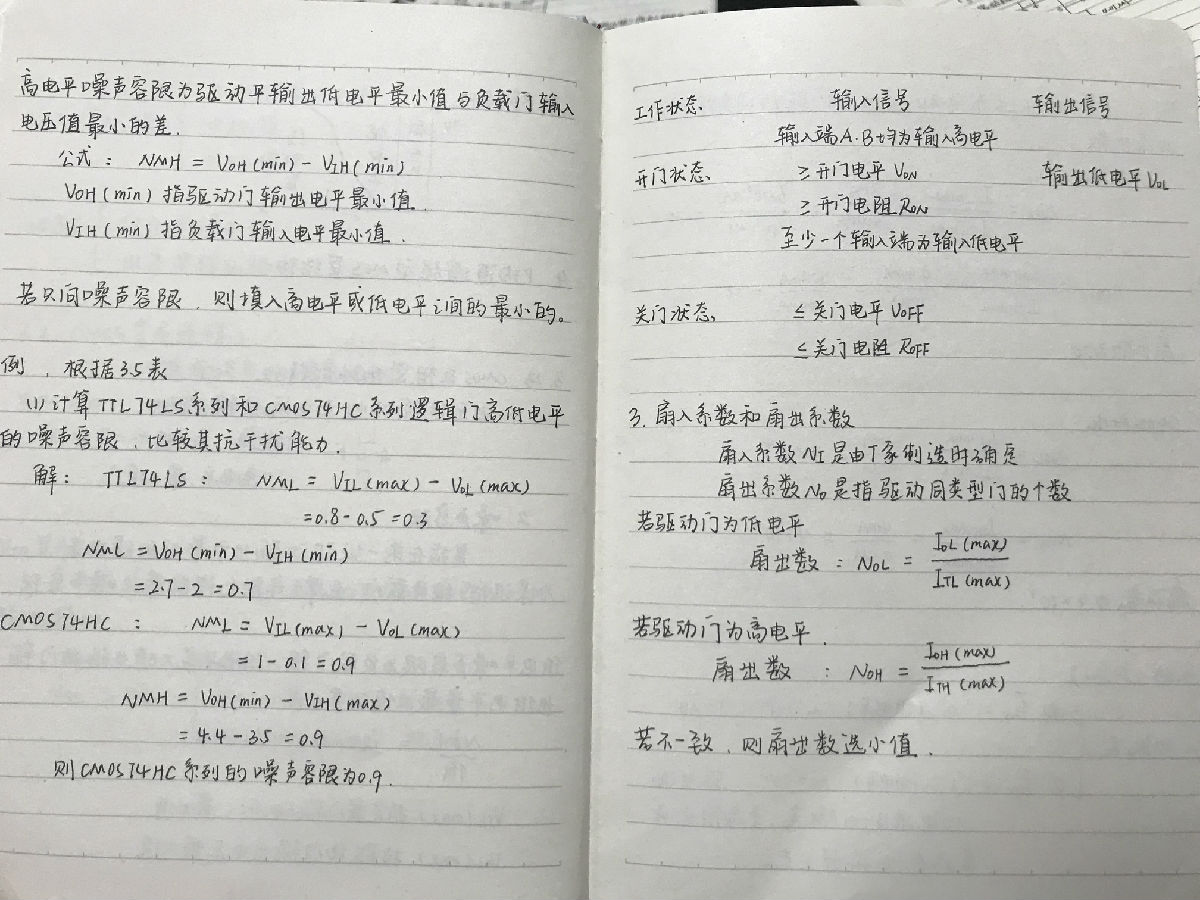 高电平噪声容限为驱动平输出低电平最小值与负载门输入
电压值最小的差.
公式: NMH = VOH(min) - VIH(min)
VOH(min) 指驱动门输出电平最小值.
VIH(min) 指负载门输入电平最小值.
若只问噪声容限,则填入高电平或低电平之间的最小的。
例,根据3.5表
(1) 计算TTL74LS系列和CMOS74HC系列逻辑门高低电平
的噪声容限,比较其抗干扰能力.
解: TTL74LS: NML = VIL(max) - VOL(max)
=0.8-0.5=0.3
NML = VOH(min) - VIH(min)
=2.7-2=0.7
CMOS74HC: NML = VIL(max) - VOL(max)
= 1-0.1=0.9
NMH = VOH(min) - VIH(max)
= 4.4-3.5=0.9
则CMOS74HC系列的噪声容限为0.9.
工作状态 输入信号 输出信号
输入端A.B均为输入高电平
开门状态 ≥开门电平 VON 输出低电平VOL
≥开门电阻 RON
至少一个输入端为输入低电平
关门状态 ≤关门电平 VOFF
≤关门电阻 ROFF
3.扇入系数和扇出系数
扇入系数NI是由厂家制造时确定
扇出系数No是指驱动同类型门的个数
若驱动门为低电平
扇出数: NOL = IOL(max) / IIL(max)
若驱动门为高电平.
扇出数: NOH = IOH(max) / IIH(max)
若不一致,则扇出数选小值.